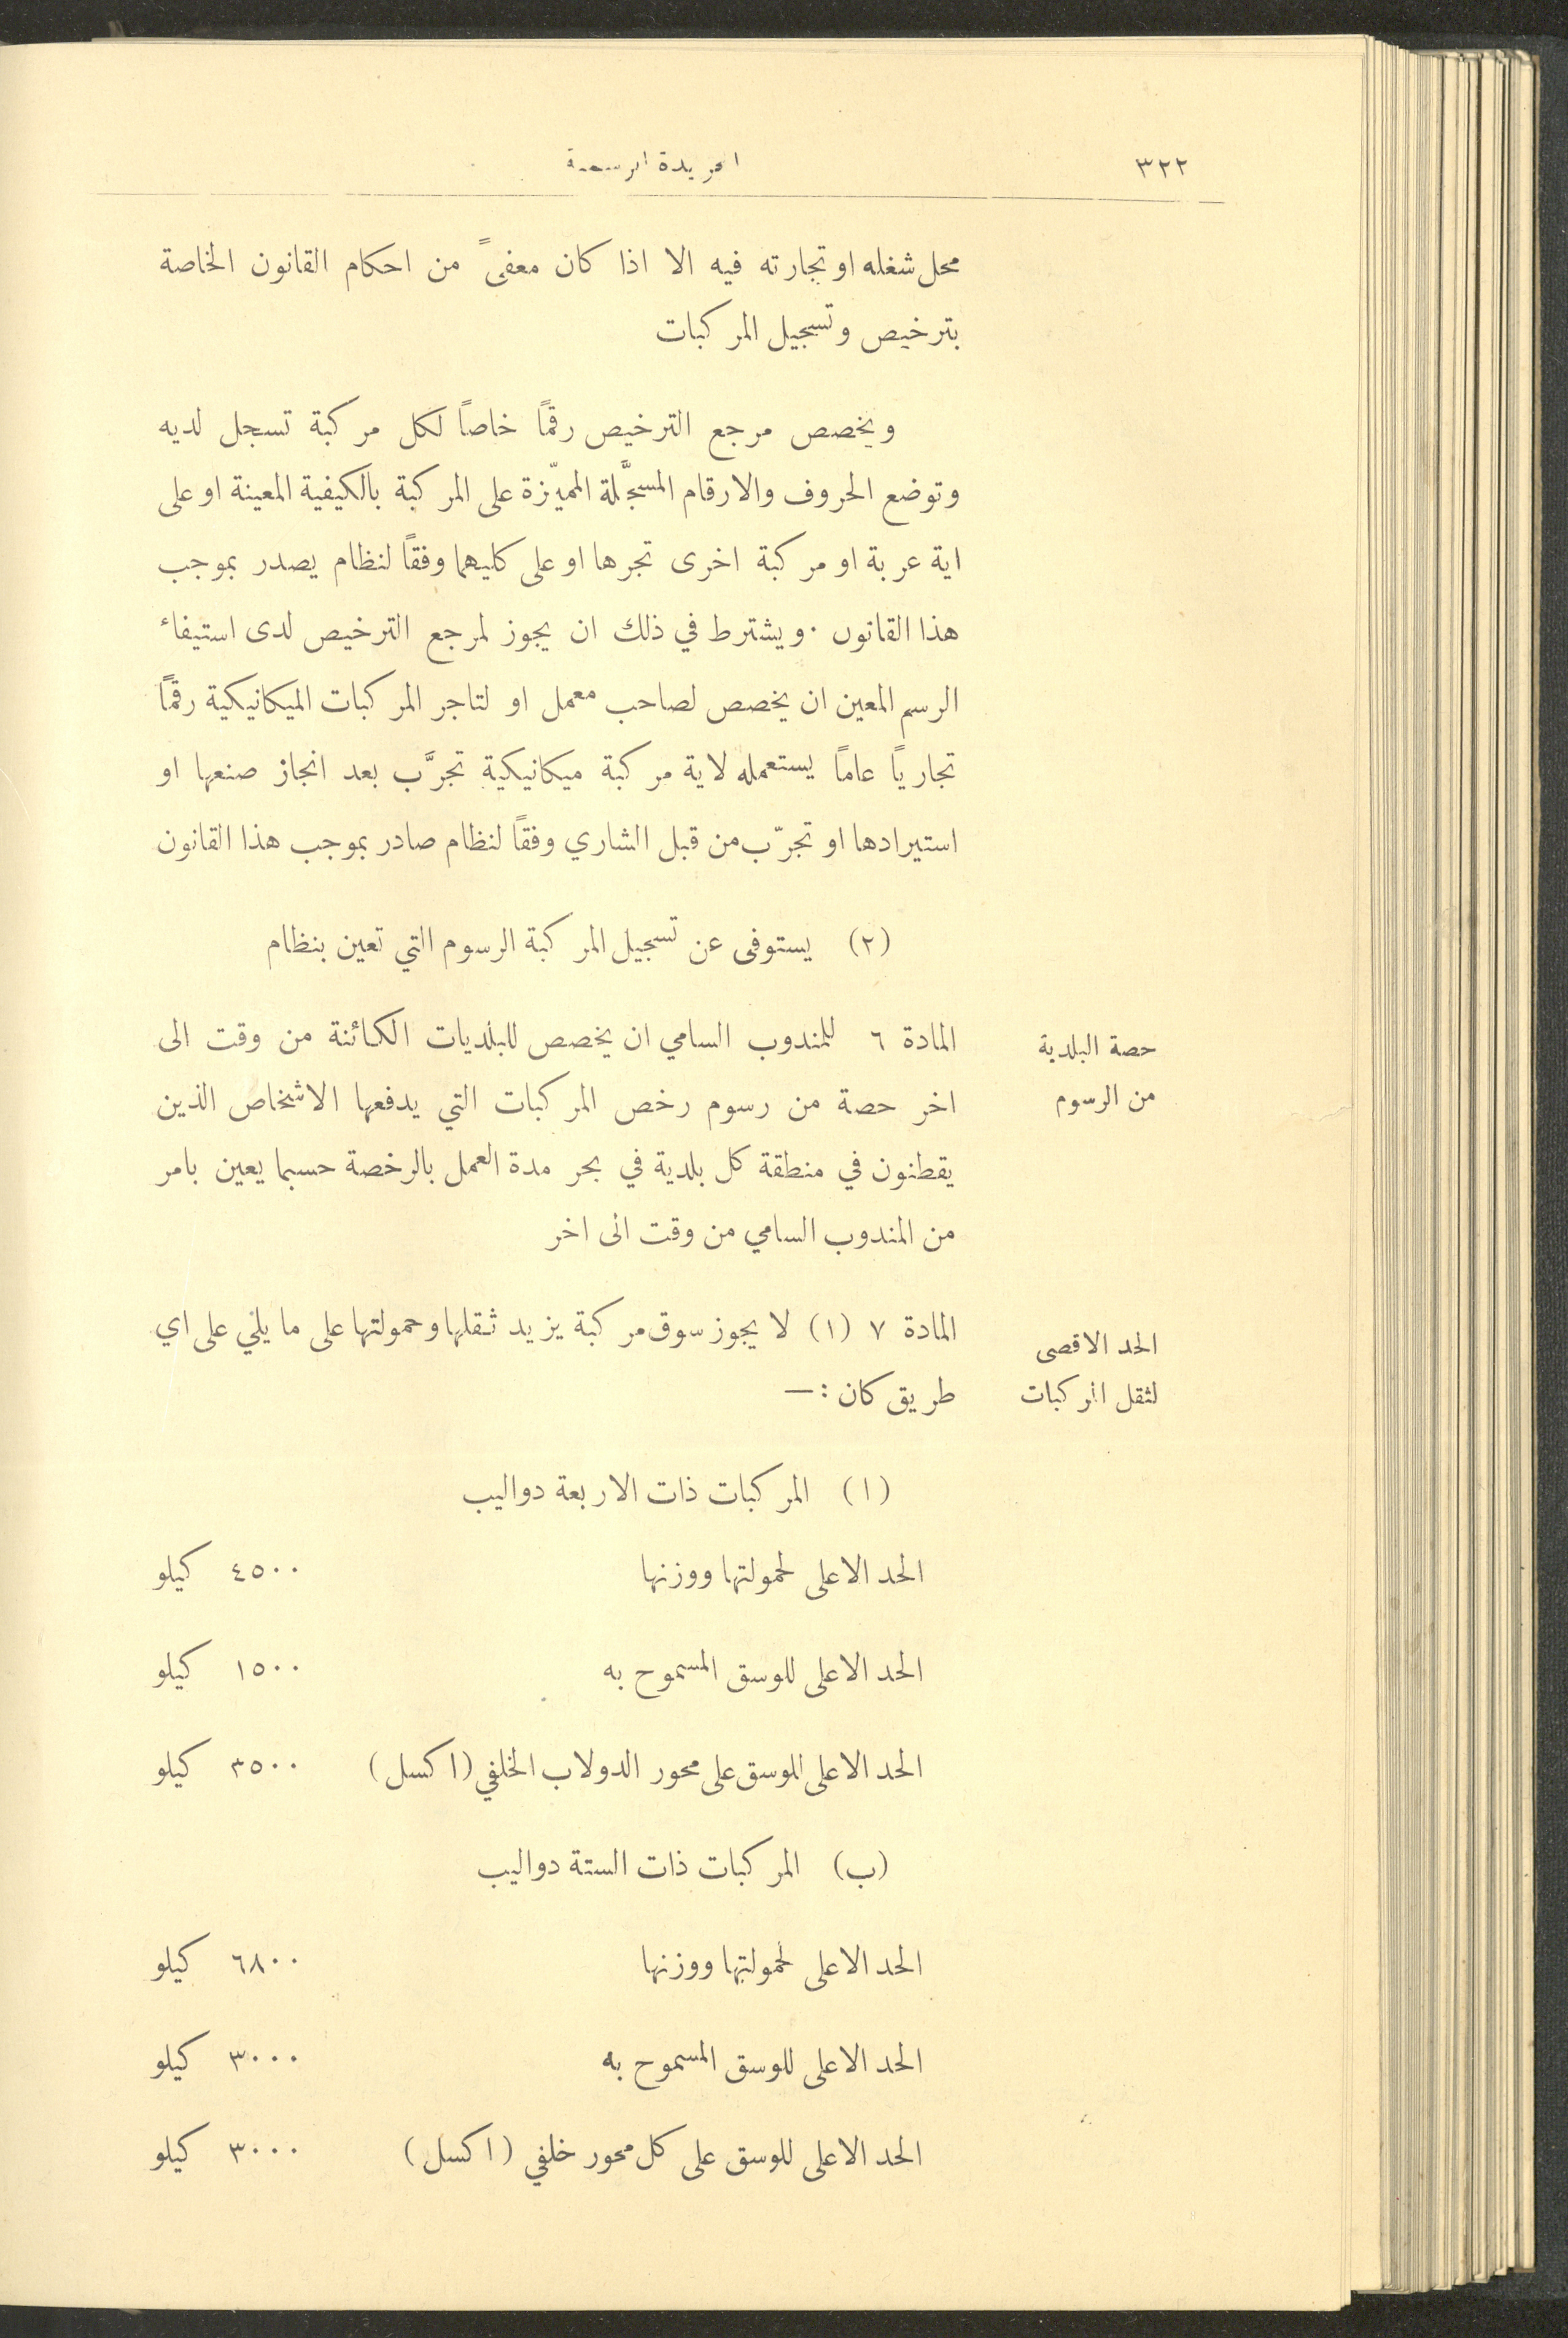 ٣٢٢
الجريدة الرسمية
محل شغله او تجارته فيه الا اذا كان معفىً من احكام القانون الخاصة
بترخيص وتسجيل المركبات
ويخصص مرجع الترخيص رقمًا خاصًا لكل مركبة تسجل لديه
وتوضع الحروف والارقام المسجَّلة المميّزة على المركبة بالكيفية المعينة او على
اية عربة او مركبة اخرى تجرها او على كليهما وفقًا لنظام يصدر بموجب
هذا القانون . ويشترط في ذلك ان يجوز لمرجع الترخيص لدى استيفاء
الرسم المعين ان يخصص لصاحب معمل او لتاجر المركبات الميكانيكية رقمًا
تجاريًا عامًا يستعمله لاية مركبة ميكانيكية تجرَّب بعد انجاز صنعها او
استيرادها او تجرّب من قبل الشاري وفقًا لنظام صادر بموجب هذا القانون
(٢) يستوفى عن تسجيل المركبة الرسوم التي تعين بنظام
حصة البلدية
من الرسوم
المادة ٦ للمندوب السامي ان يخصص للبلديات الكائنة من وقت الى
اخر حصة من رسوم رخص المركبات التي يدفعها الاشخاص الذين
يقطنون في منطقة كل بلدية في بحر مدة العمل بالرخصة حسبما يعين بامر
من المندوب السامي من وقت الى اخر
الحد الاقصى
لثقل المركبات
المادة ٧ (١) لا يجوز سوق مركبة يزيد ثقلها وحمولتها على ما يلي على اي
طريق كان : —
(ا) المركبات ذات الاربعة دواليب
الحد الاعلى لحمولتها ووزنها ٤٥٠٠ كيلو
الحد الاعلى للوسق المسموح به ١٥٠٠ كيلو
الحد الاعلى للوسق على محور الدولاب الخلفي (اكسل) ٣٥٠٠ كيلو
(ب) المركبات ذات الستة دواليب
الحد الاعلى لحمولتها ووزنها ٦٨٠٠ كيلو
الحد الاعلى للوسق المسموح به ٣٠٠٠ كيلو
الحد الاعلى للوسق على كل محور خلفي (اكسل) ٣٠٠٠ كيلو